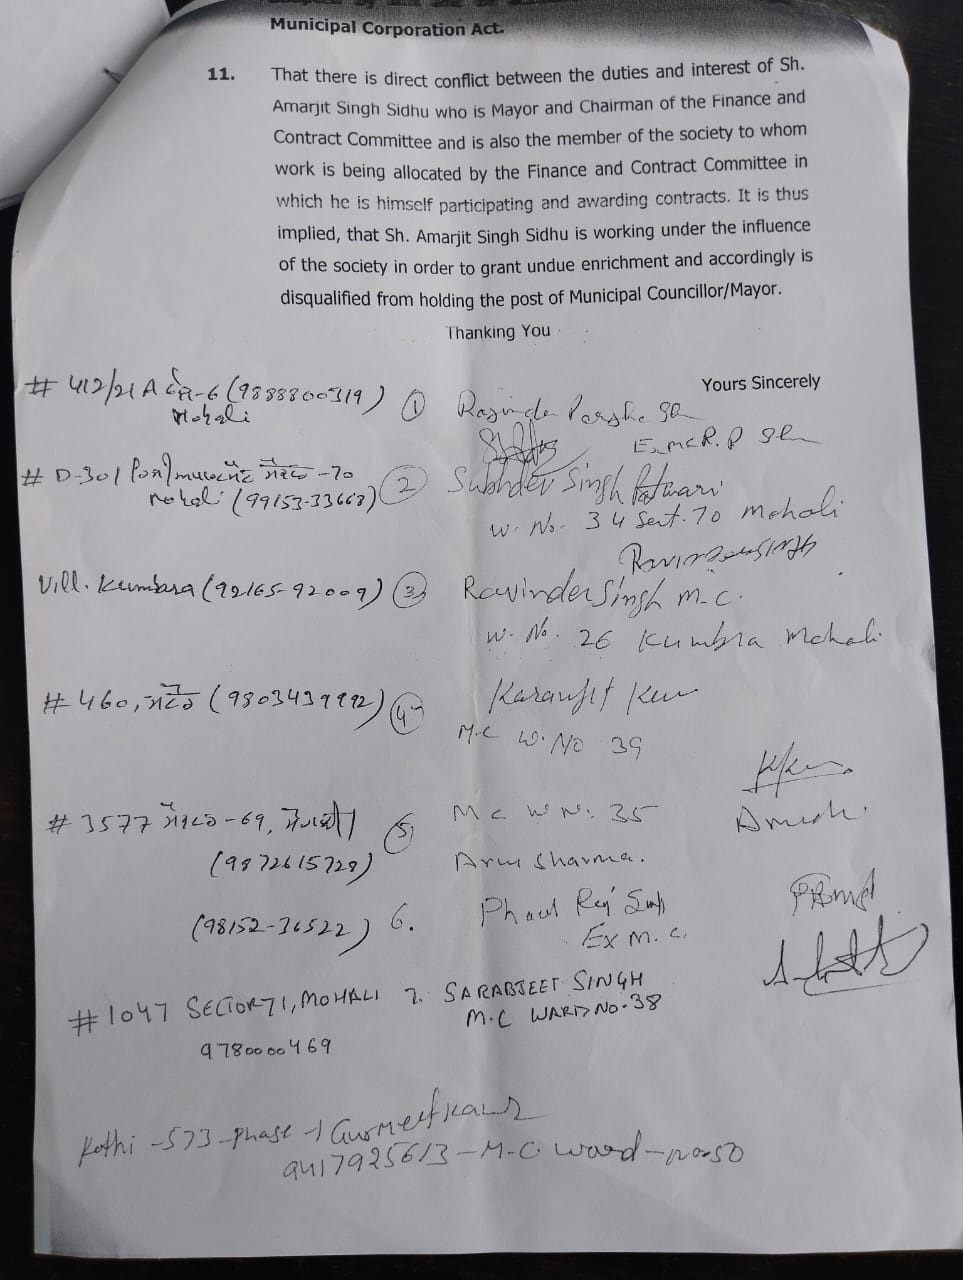 Municipal Corporation Act.
11. That there is direct conflict between the duties and interest of Sh.
Amarjit Singh Sidhu who is Mayor and Chairman of the Finance and
Contract Committee and is also the member of the society to whom
work is being allocated by the Finance and Contract Committee in
which he is himself participating and awarding contracts. It is thus
implied, that Sh. Amarjit Singh Sidhu is working under the influence
of the society in order to grant undue enrichment and accordingly is
disqualified from holding the post of Municipal Councillor/Mayor.
Thanking You
Yours Sincerely
# 412/21 A (9888800319) 1
Mohali
Ex MC R.P
# D-301 -70 2 Sukhdev Singh Patwari
(99153-33668)
W. No. 34 Sect. 70 Mohali
Ravinder Singh
Vill. Kumbara (92165-92009) 3 Ravinder Singh M.C.
W. No. 26 Kumbra Mohali
# 460, (9803439992) 4
M.C W. No 39
# 3577 ਸੈਕਟਰ -69, 5 MC W N. 35
(9872615728) Arun Sharma.
(98152-36522) 6.
Ex M.C.
#1047 SECTOR 71, MOHALI 7. SARABJEET SINGH
M.C WARD NO. 38
9780000469
Kothi -573 -Phase -1 Gurmeet Kaur
9417925613 - M.C. Ward - no